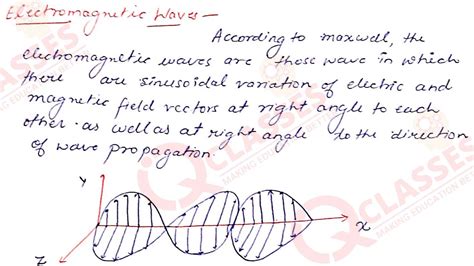 Electromagnetic Waves –
According to maxwell, the
electromagnetic waves are those wave in which
there are sinusoidal variation of electric and
magnetic field vectors at right angle to each
other as well as at right angle to the direction
of wave propagation.
Y
X
Z
QCLASSES
MAKING EDUCATION BET
CLASSES
MAKING EDUCATION BET